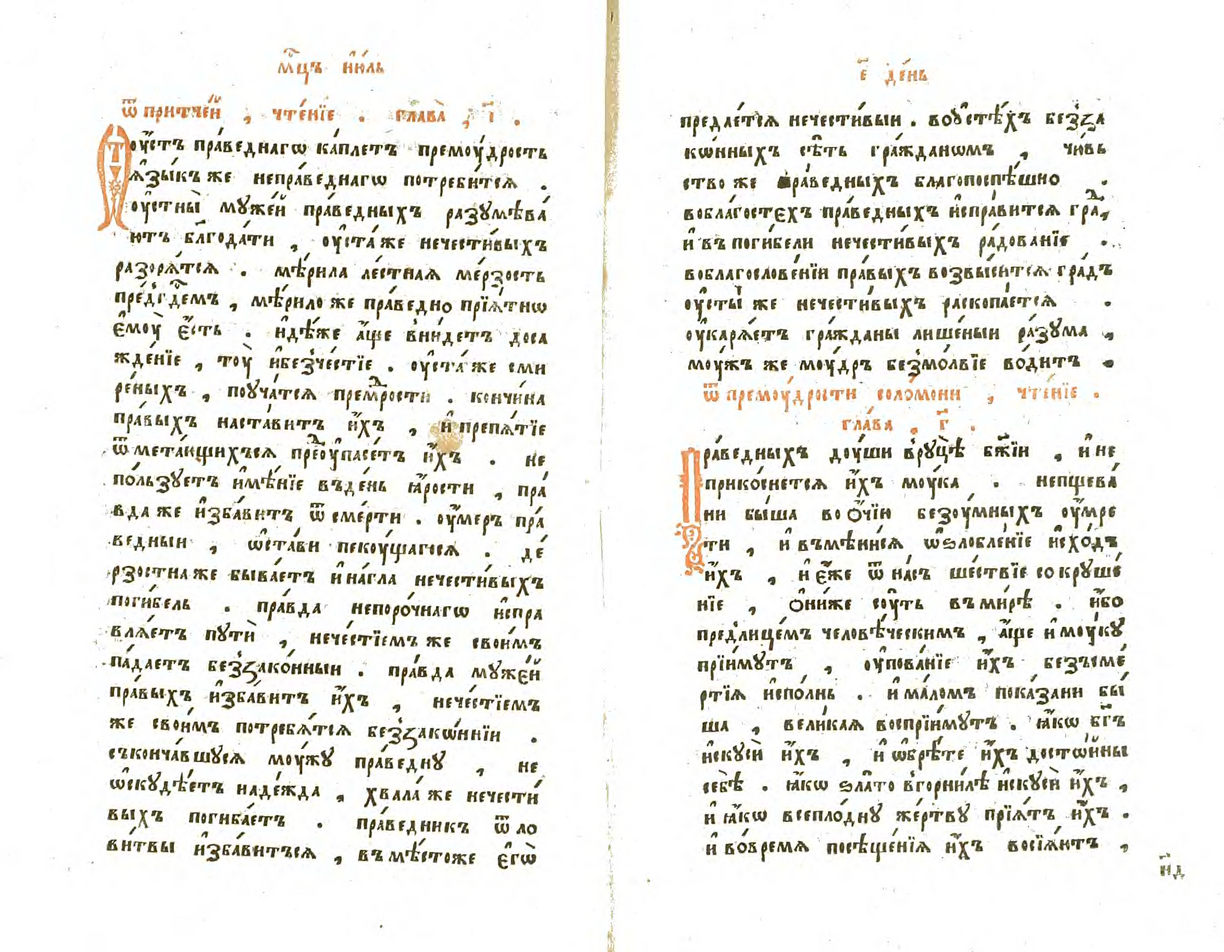 мⷭ҇цъ ию́ль
ѿ притче́й , чте́нїе . глава̀ , і҃ .
Оу҆стъ пра́веднагѡ ка́плетъ премоу́дрость
ѧ҆зы́къ же непра́веднагѡ потреби́тсѧ .
оу҆стны̀ муже́й пра́ведныхъ разумѣва́
ютъ блг҃ода́ти , оу҆ста́ же нечести́выхъ
разорѧ́тсѧ . мѣ́рила ле́стнаѧ ме́рзость
пред̾ гдⷭ҇емъ , мѣ́рило же пра́ведно прїѧ́тнѡ
є҆моу̀ є҆́сть . идѣ́же а҆́ще вни́детъ доса
жде́нїе , тоу̀ и҆безче́стїе . оу҆ста́ же сми
ре́ныхъ , поуча́тсѧ премⷣрости . кончи́на
пра́выхъ наста́витъ и҆̀хъ , и҆ препѧ́тїе
ѿмета́ющихъсѧ преⷣоупасе́тъ и҆̀хъ . не
по́льзуетъ имѣ́нїе въде́нь ꙗ҆́рости , пра́
вда же и҆зба́витъ ѿ сме́рти . оу҆ме́ръ пра́
ведныи , ѡ҆ста́ви пекоу́щагосѧ . де́
рзостна же быва́етъ и҆на́гла нечести́выхъ
поги́бель . пра́вда непоро́чнагѡ испра
влѧ́етъ пути̏ , нече́стїемъ же свои́мъ
па́даетъ беззако́нныи . пра́вда муже́й
пра́выхъ и҆зба́витъ и҆̀хъ , нече́стїемъ
же свои́мъ потребѧ́тсѧ беззако́ннїи .
съконча́вшусѧ моу́жу пра́ведну , не
ѡ҆скудѣ́етъ наде́жда , хвала́ же нечести́
выхъ погиба́етъ . пра́ведникъ ѿ ло
ви́твы и҆зба́витьсѧ , въмѣ́стоже є҆гѡ̀
є҃ де́нь
предае́тсѧ нечести́выи . воу҆стѣ́хъ безза
ко́нныхъ сѣ́ть гра́жданѡмъ , чю́въ
ство же пра́ведныхъ благопоспѣ́шно .
воблагосте́хъ пра́ведныхъ и҆спра́витсѧ граⷣ,
и҆ въ поги́бели нечести́выхъ ра́дованїе .
воблагослове́нїи пра́выхъ возвы́ситсѧ гра́дъ
оу҆сты̏ же нечести́выхъ раскопа́етсѧ .
оу҆карѧ́етъ гра́жданы лише́ныи ра́зума ,
моу́жъ же моу́дръ безмо́лвїе во́дитъ .
ѿ премоу́дрости соломо́ни , чте́нїе .
глава̀ , г҃ .
Пра́ведныхъ доу́ши вруцѣ̀ бж҃їи , и҆ не
прико́снетсѧ и҆́хъ моу́ка . непщева́
ни бы́ша во ѻ҆чїи̏ безоу́мныхъ оу҆мре́
ти , и҆ въмѣни́сѧ ѡ҆ѕлобле́нїе исхо́дъ
и҆́хъ , и҆ є҆́же ѿ на́съ ше́ствїе сокруше́
нїе , ѻ҆ни́же соу́ть въми́рѣ . и҆́бо
предлице́мъ человѣ́ческимъ , а҆́ще и҆ моу́ку
прїи́мутъ , оу҆пова́нїе и҆́хъ безъсме́
ртїѧ испо́лнь . и҆ ма́ломъ пока́зани бы́
ша , вели́каѧ воспрїи́мутъ . ꙗ҆́кѡ бг҃ъ
и҆скусѝ и҆́хъ , и҆ ѡ҆брѣ́те и҆́хъ досто́йны
себѣ̀ . ꙗ҆́кѡ ѕла́то вгорни́лѣ и҆скусѝ и҆́хъ ,
и҆ ꙗ҆́кѡ всепло́дну же́ртву прїѧ́тъ и҆́хъ .
и҆ во́времѧ посѣще́нїѧ и҆́хъ восїѧ́ютъ ,
н҃д